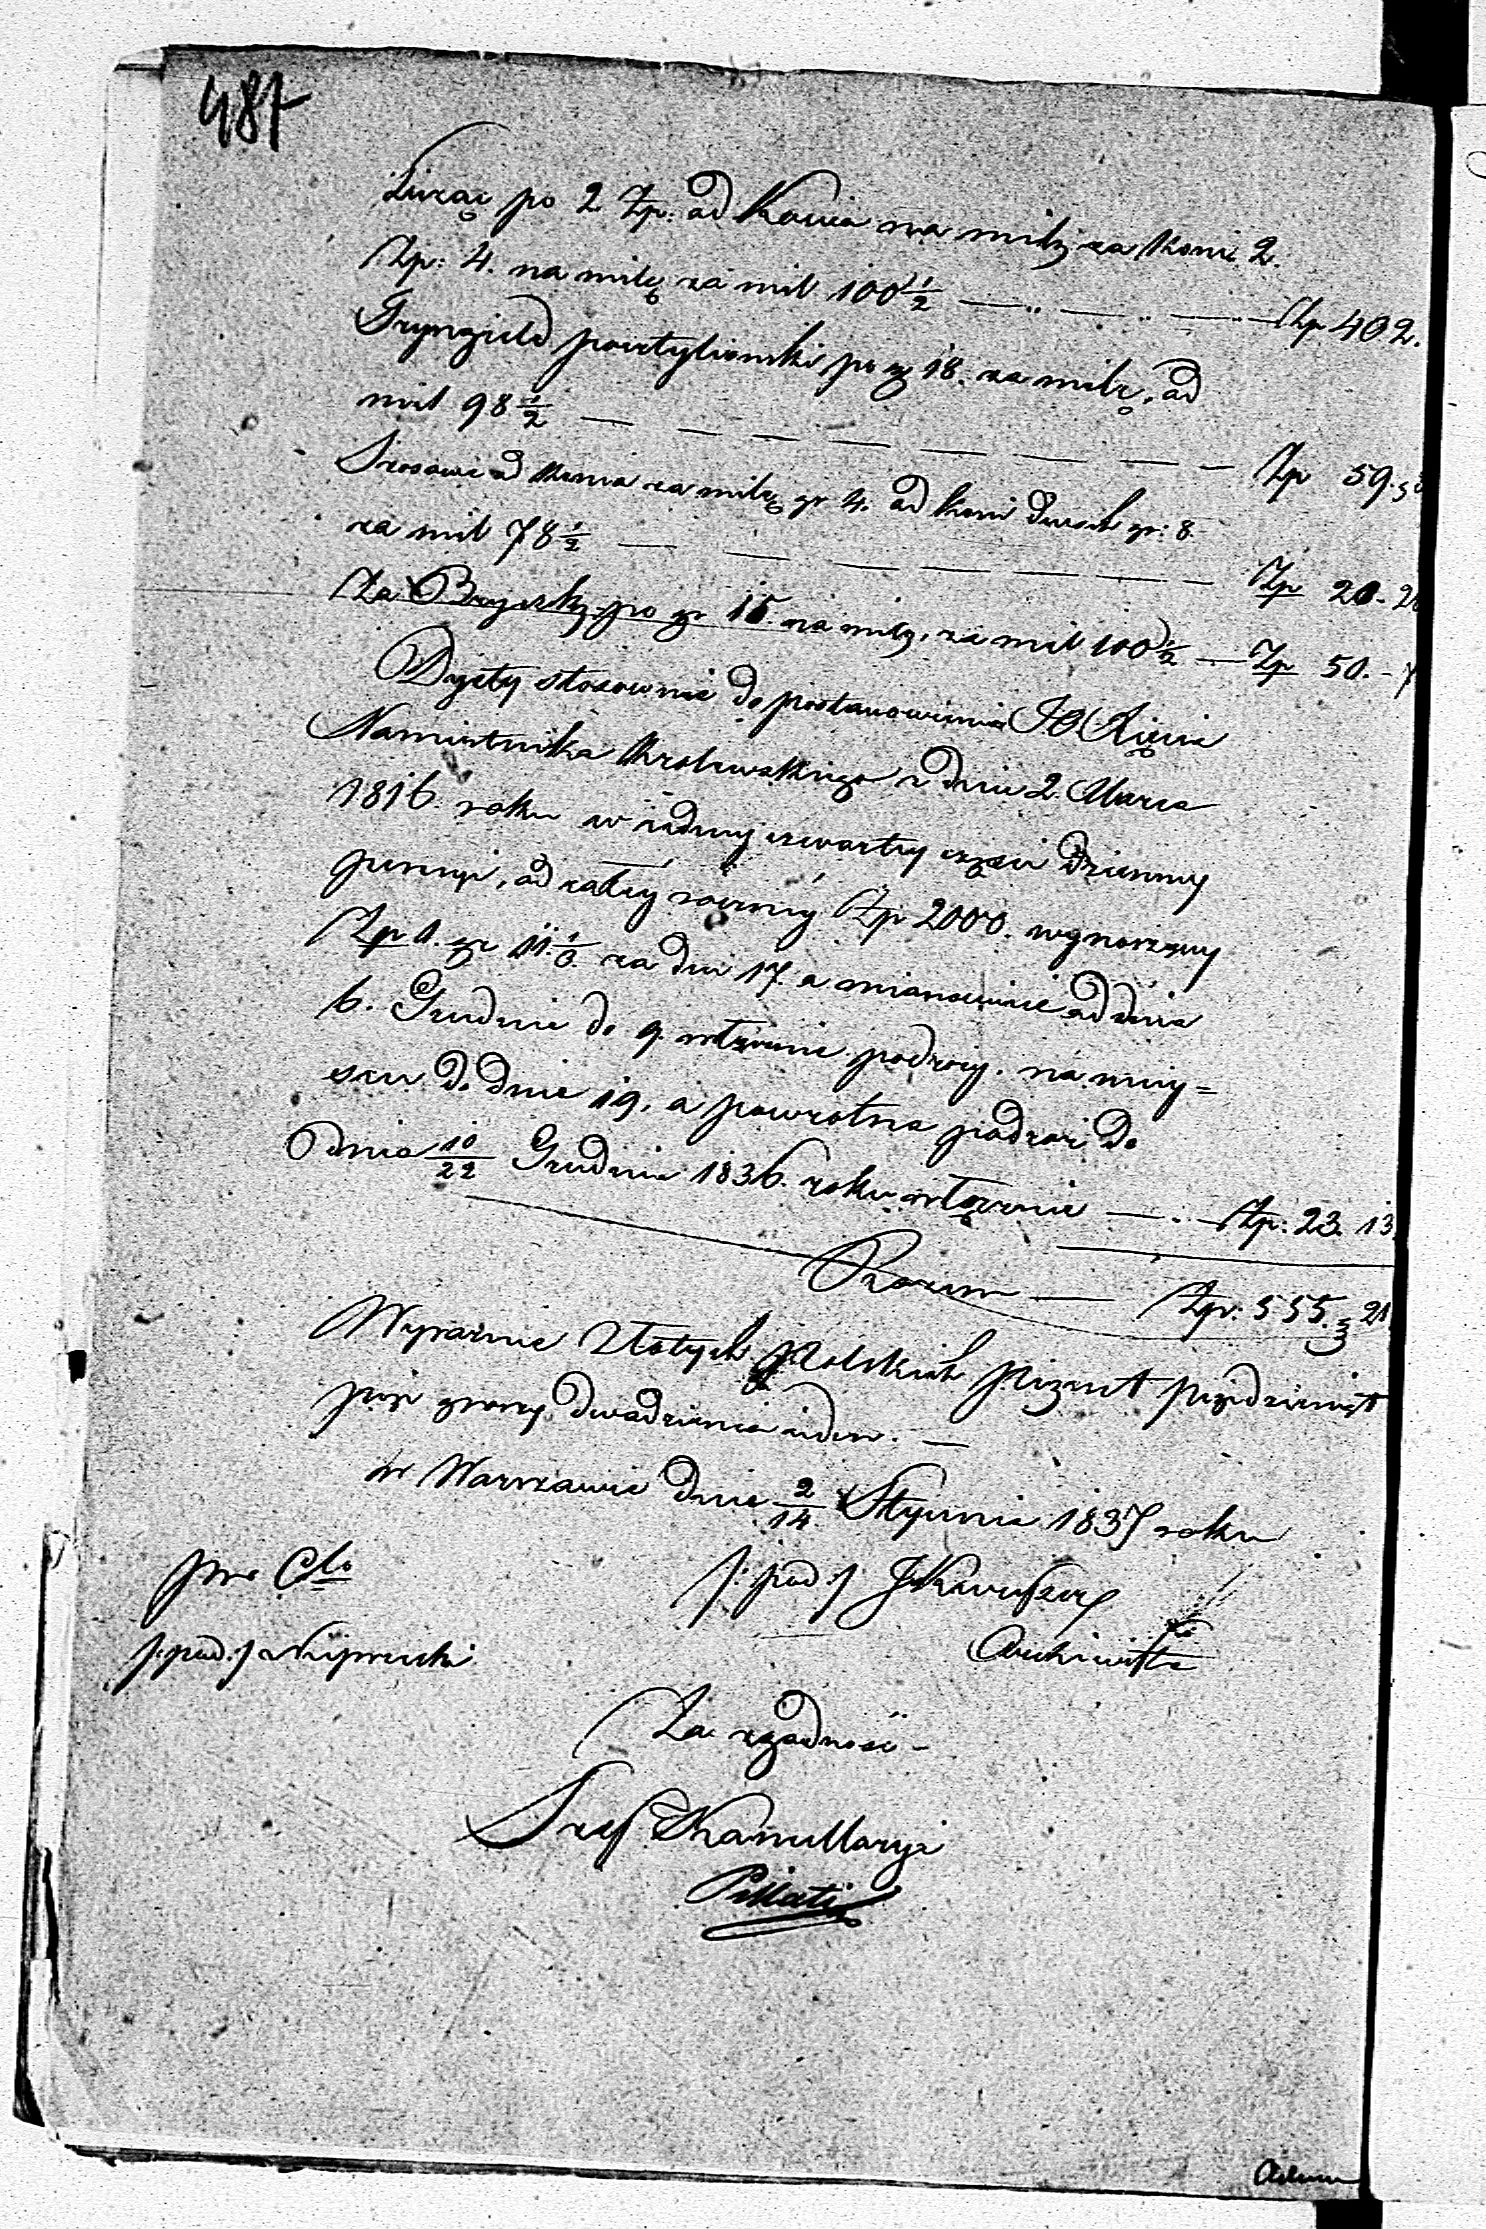 487
Licząc po 2 Zp: od Konia na milę za Koni 2.
Zp: 4. na milę za mil 100 1/2 — Zp 402.
Tryngield pocztylionski po gr 18. za milę, od
mil 98 1/2 — Zp 59. 3
Szosowe od Konia za milę gr 4. od koni dwoch gr: 8.
za mil 78 1/2 — Zp 20. 2
Za Bryczkę po gr 15. na milę, za mil 100 1/2 — Zp 50. - 7
Dyety stosownie do postanowienia JO Xięcia
Namiestnika Krolewskiego z dnia 2. Marca
1816. roku w iedney czwartey części dzienney
pensyi, od całey roczney Zp 2000. wynoszącey
Zp 1. gr 11. za dni 17. a mianowicie od dnia
6. Grudnia do 9. podroży. na miey=
scu do dnia 19, a powrotna podroż do
dnia 10/22 Grudnia 1836. roku włącznie — Zp: 23. 13
Razem — Zp: 555. 21
Wyraznie Złotych Polskich pięćset pięćdziesiąt
pięć groszy dwadzieścia ieden. —
w Warszawie dnia 2/14 Stycznia 1837 roku
pro Cto
/: pod :/
/: pod :/
Archiwista
Za zgodność -
Szef Kancellaryi